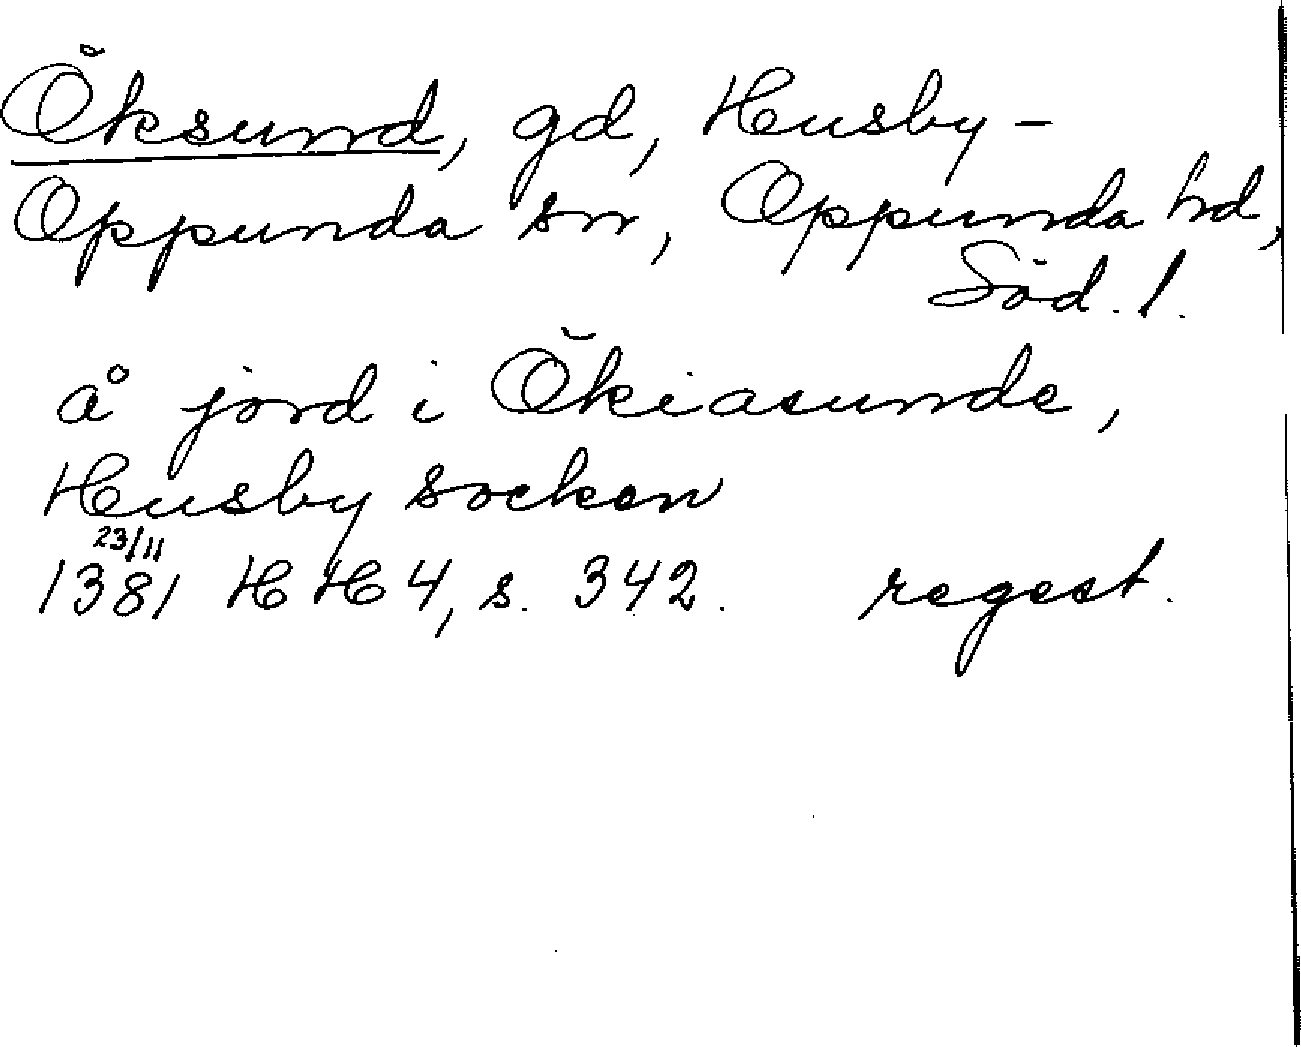 Öksund, gd, Husby-
Oppunda sn, Oppunda hd,
Söd. l.
å jord i Ökiasunde,
Husby socken
23/11
1381 HH 4, s. 342. regest.